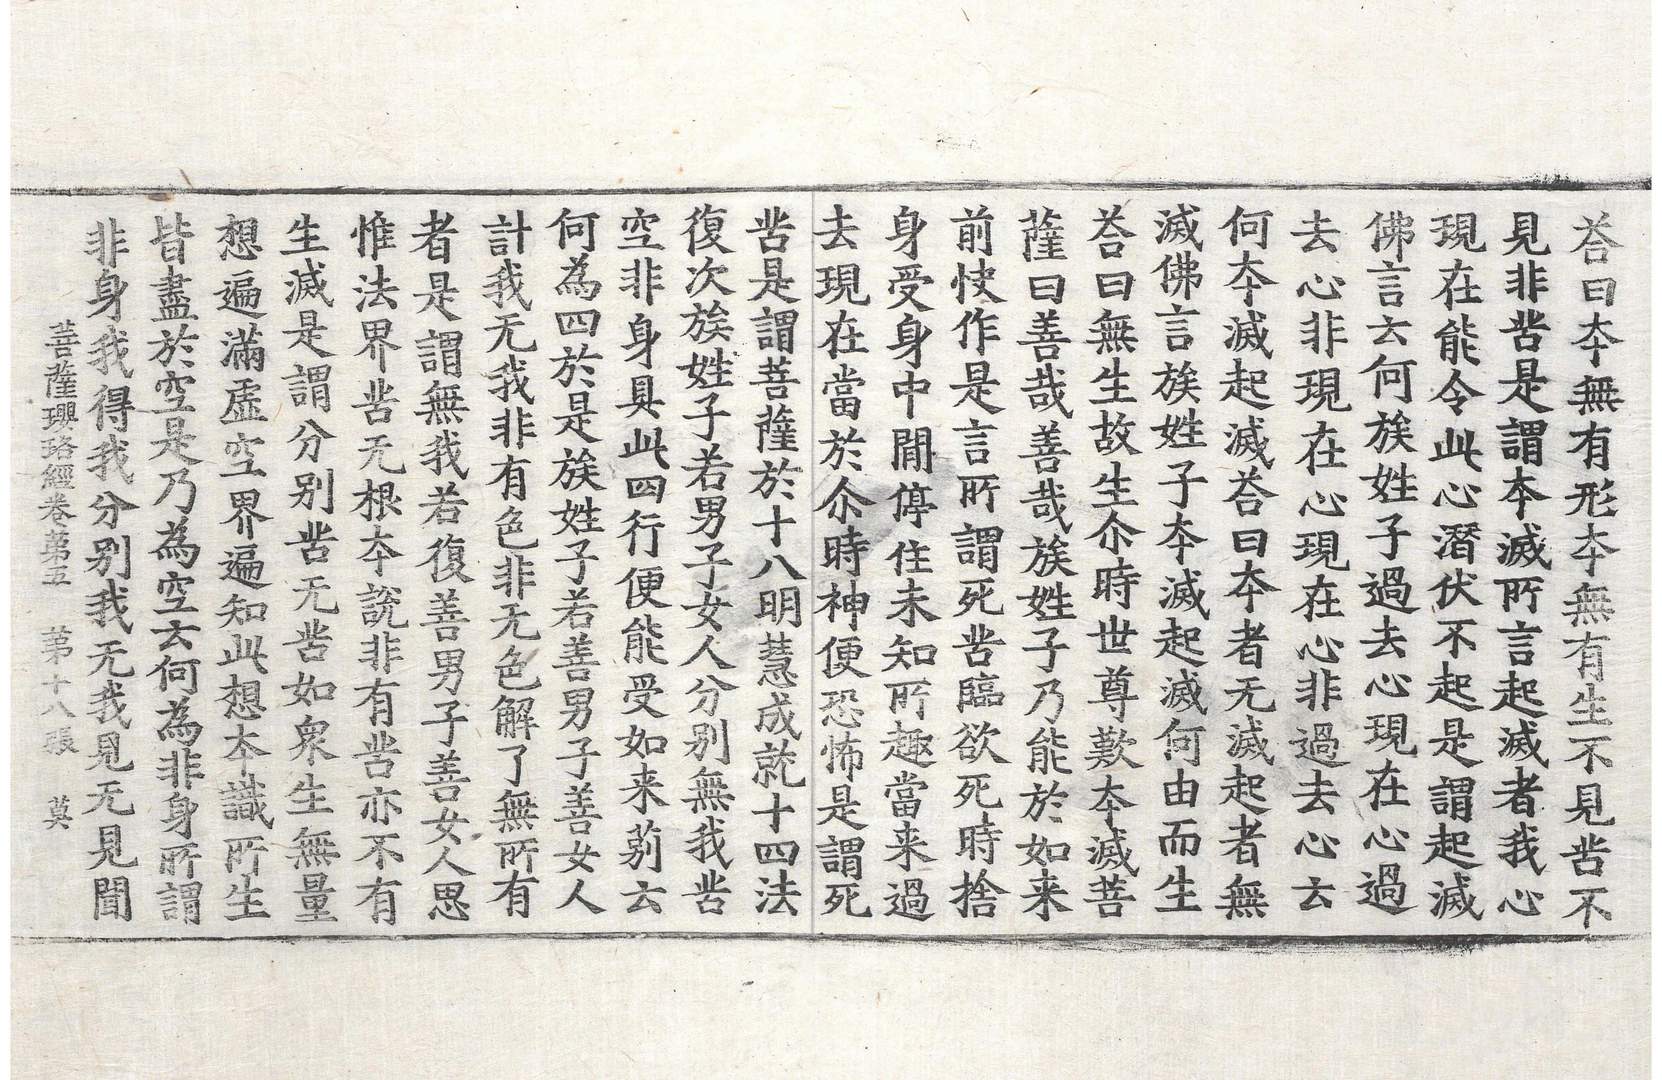 荅曰夲無有形夲無有生不見苦不
見非苦是謂夲滅所言起滅者我心
現在能令此心潛伏不起是謂起滅
佛言云何族姓子過去心現在心過
去心非現在心現在心非過去心云
何夲滅起滅荅曰夲者无滅起者無
滅佛言族姓子夲滅起滅何由而生
荅曰無生故生尒時世尊歎夲滅菩
薩曰善哉善哉族姓子乃能於如来
前快作是言所謂死苦臨欲死時捨
身受身中間停住未知所趣當来過
去現在當於尒時神便恐怖是謂死
苦是謂菩薩於十八明慧成就十四法
復次族姓子若男子女人分別無我苦
空非身具此四行便能受如来莂云
何為四於是族姓子若善男子善女人
計我无我非有色非无色解了無所有
者是謂無我若復善男子善女人思
惟法界苦无根夲說非有苦亦不有
生滅是謂分別苦无苦如衆生無量
想遍滿虛空界遍知此想夲識所生
皆盡於空是乃為空云何為非身所謂
非身我得我分別我无我見无見聞
菩薩瓔珞經卷第五 第十八張 莫